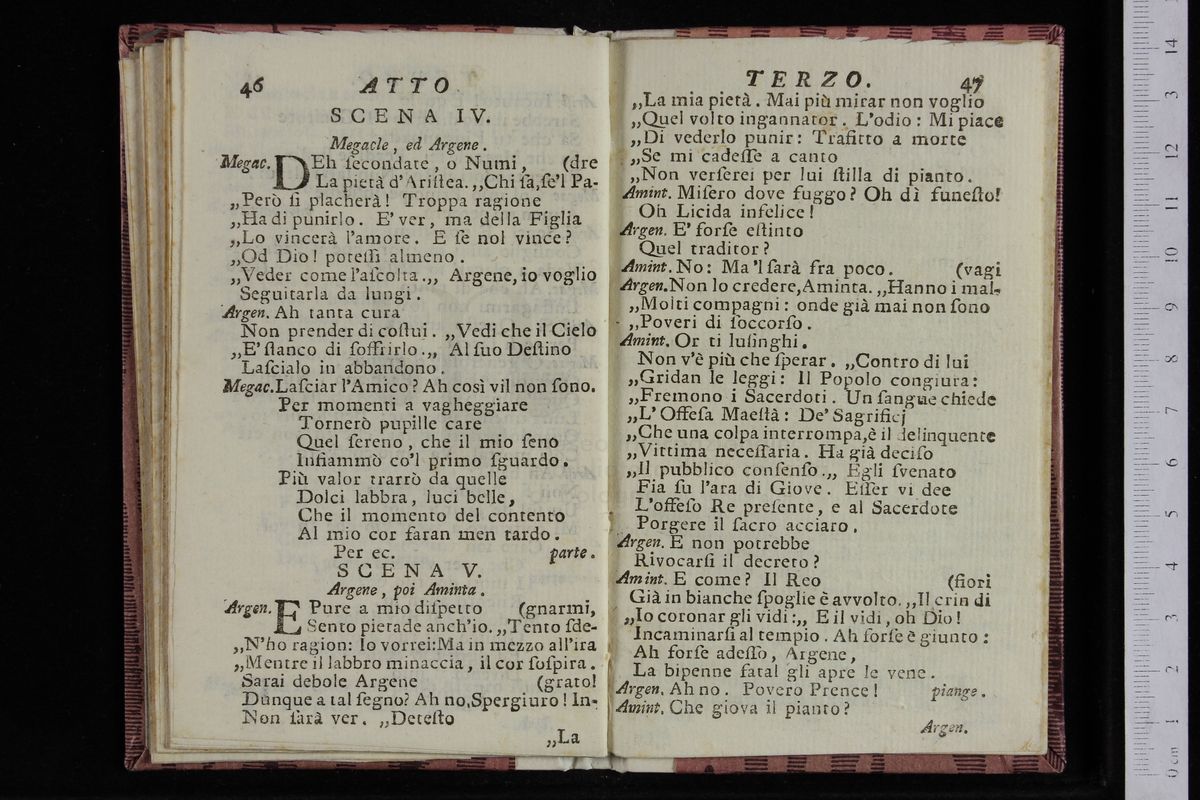 46 ATTO
SCENA IV.
Megacle, ed Argene.
Megac. DEh ſecondate, o Numi, (dre
La pietà d'Ariſtea. ,,Chi ſa,ſe'l Pa-
,,Però ſi placherà! Troppa ragione
,,Ha di punirlo. E' ver, ma della Figlia
,,Lo vincerà l'amore. E ſe nol vince?
,,Od Dio! poteſſi almeno.
,,Veder come l'aſcolta.,, Argene, io voglio
Seguitarla da lungi.
Argen. Ah tanta cura
Non prender di coſtui. ,,Vedi che il Cielo
,,E' ſtanco di ſoffrirlo.,, Al ſuo Deſtino
Laſcialo in abbandono.
Megac. Laſciar l'Amico? Ah così vil non ſono.
Per momenti a vagheggiare
Tornerò pupille care
Quel ſereno, che il mio ſeno
Infiammò co'l primo ſguardo.
Più valor trarrò da quelle
Dolci labbra, luci belle,
Che il momento del contento
Al mio cor faran men tardo.
Per ec. parte.
SCENA V.
Argene, poi Aminta.
Argen. E Pure a mio diſpetto (gnarmi,
Sento pietade anch'io. ,,Tento ſde-
,,N'ho ragion: Io vorrei:Ma in mezzo all'ira
,,Mentre il labbro minaccia, il cor ſoſpira.
Sarai debole Argene (grato!
Dunque a tal ſegno? Ah no,Spergiuro! In-
Non ſarà ver. ,,Deteſto
,,La
TERZO. 47
,,La mia pietà. Mai più mirar non voglio
,,Quel volto ingannator. L'odio: Mi piace
,,Di vederlo punir: Trafitto a morte
,,Se mi cadeſſe a canto
,,Non verſerei per lui ſtilla di pianto.
Amint. Miſero dove fuggo? Oh dì funeſto!
Oh Licida infelice!
Argen. E' forſe eſtinto
Quel traditor?
Amint. No: Ma 'l ſarà fra poco. (vagi
Argen. Non lo credere, Aminta. ,,Hanno i mal-
,,Molti compagni: onde già mai non ſono
,,Poveri di ſoccorſo.
Amint. Or ti luſinghi.
Non v'è più che ſperar. ,,Contro di lui
,,Gridan le leggi: Il Popolo congiura:
,,Fremono i Sacerdoti. Un ſangue chiede
,,L' Offeſa Maeſtà: De' Sagrificj
,,Che una colpa interrompa,è il delinquente
,,Vittima neceſſaria. Ha già deciſo
,,Il pubblico conſenſo.,, Egli ſvenato
Fia ſu l'ara di Giove. Eſſer vi dee
L'offeſo Re preſente, e al Sacerdote
Porgere il ſacro acciaro.
Argen. E non potrebbe
Rivocarſi il decreto?
Amint. E come? Il Reo (fiori
Già in bianche ſpoglie è avvolto. ,,Il crin di
,,Io coronar gli vidi:,, E il vidi, oh Dio!
Incaminarſi al tempio. Ah forſe è giunto:
Ah forſe adeſſo, Argene,
La bipenne fatal gli apre le vene.
Argen. Ah no. Povero Prence! piange.
Amint. Che giova il pianto?
Argen.
14
3
12
11
10
9
8
7
6
5
4
3
2
1
0cm